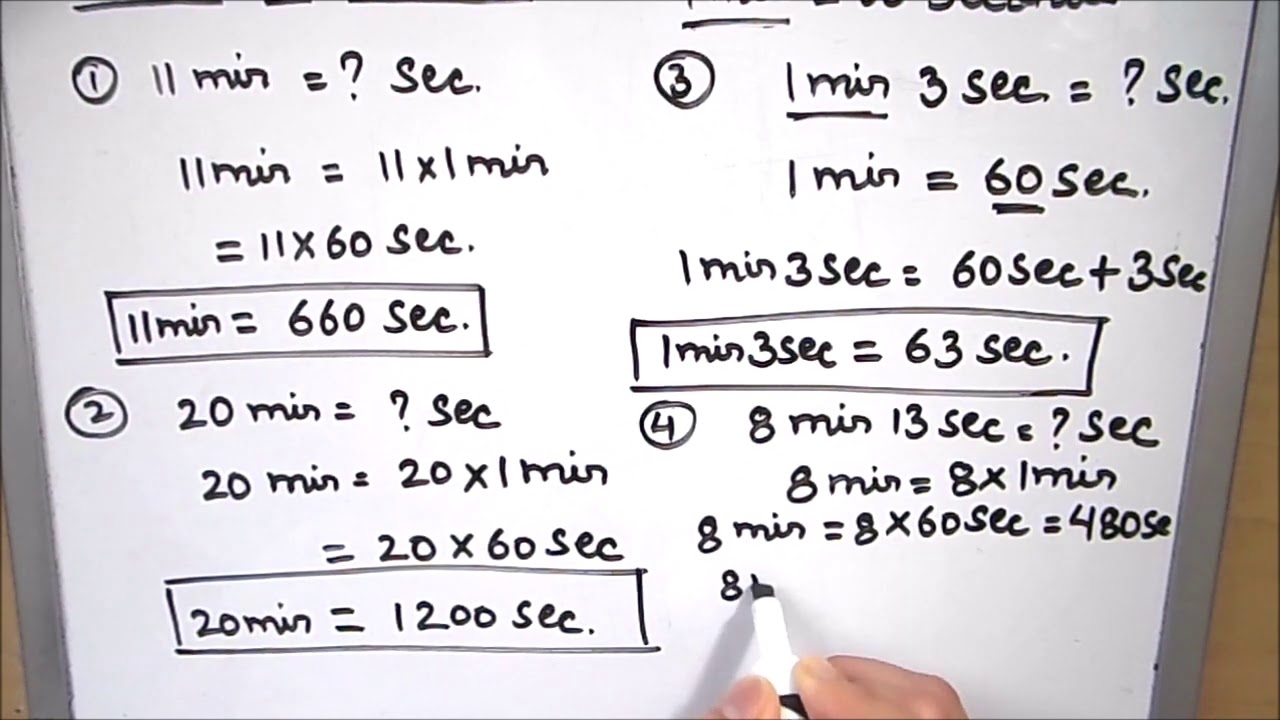 ① 11 min = ? Sec.
11 min = 11 x 1 min
= 11 x 60 Sec.
11 min = 660 Sec.
② 20 min = ? Sec
20 min = 20 x 1 min
= 20 x 60 Sec
20 min = 1200 Sec.
③ 1 min 3 Sec. = ? Sec.
1 min = 60 Sec.
1 min 3 Sec = 60 Sec + 3 Sec
1 min 3 sec = 63 Sec.
④ 8 min 13 Sec = ? Sec
8 min = 8 x 1 min
8 min = 8 x 60 Sec = 480 Se
8